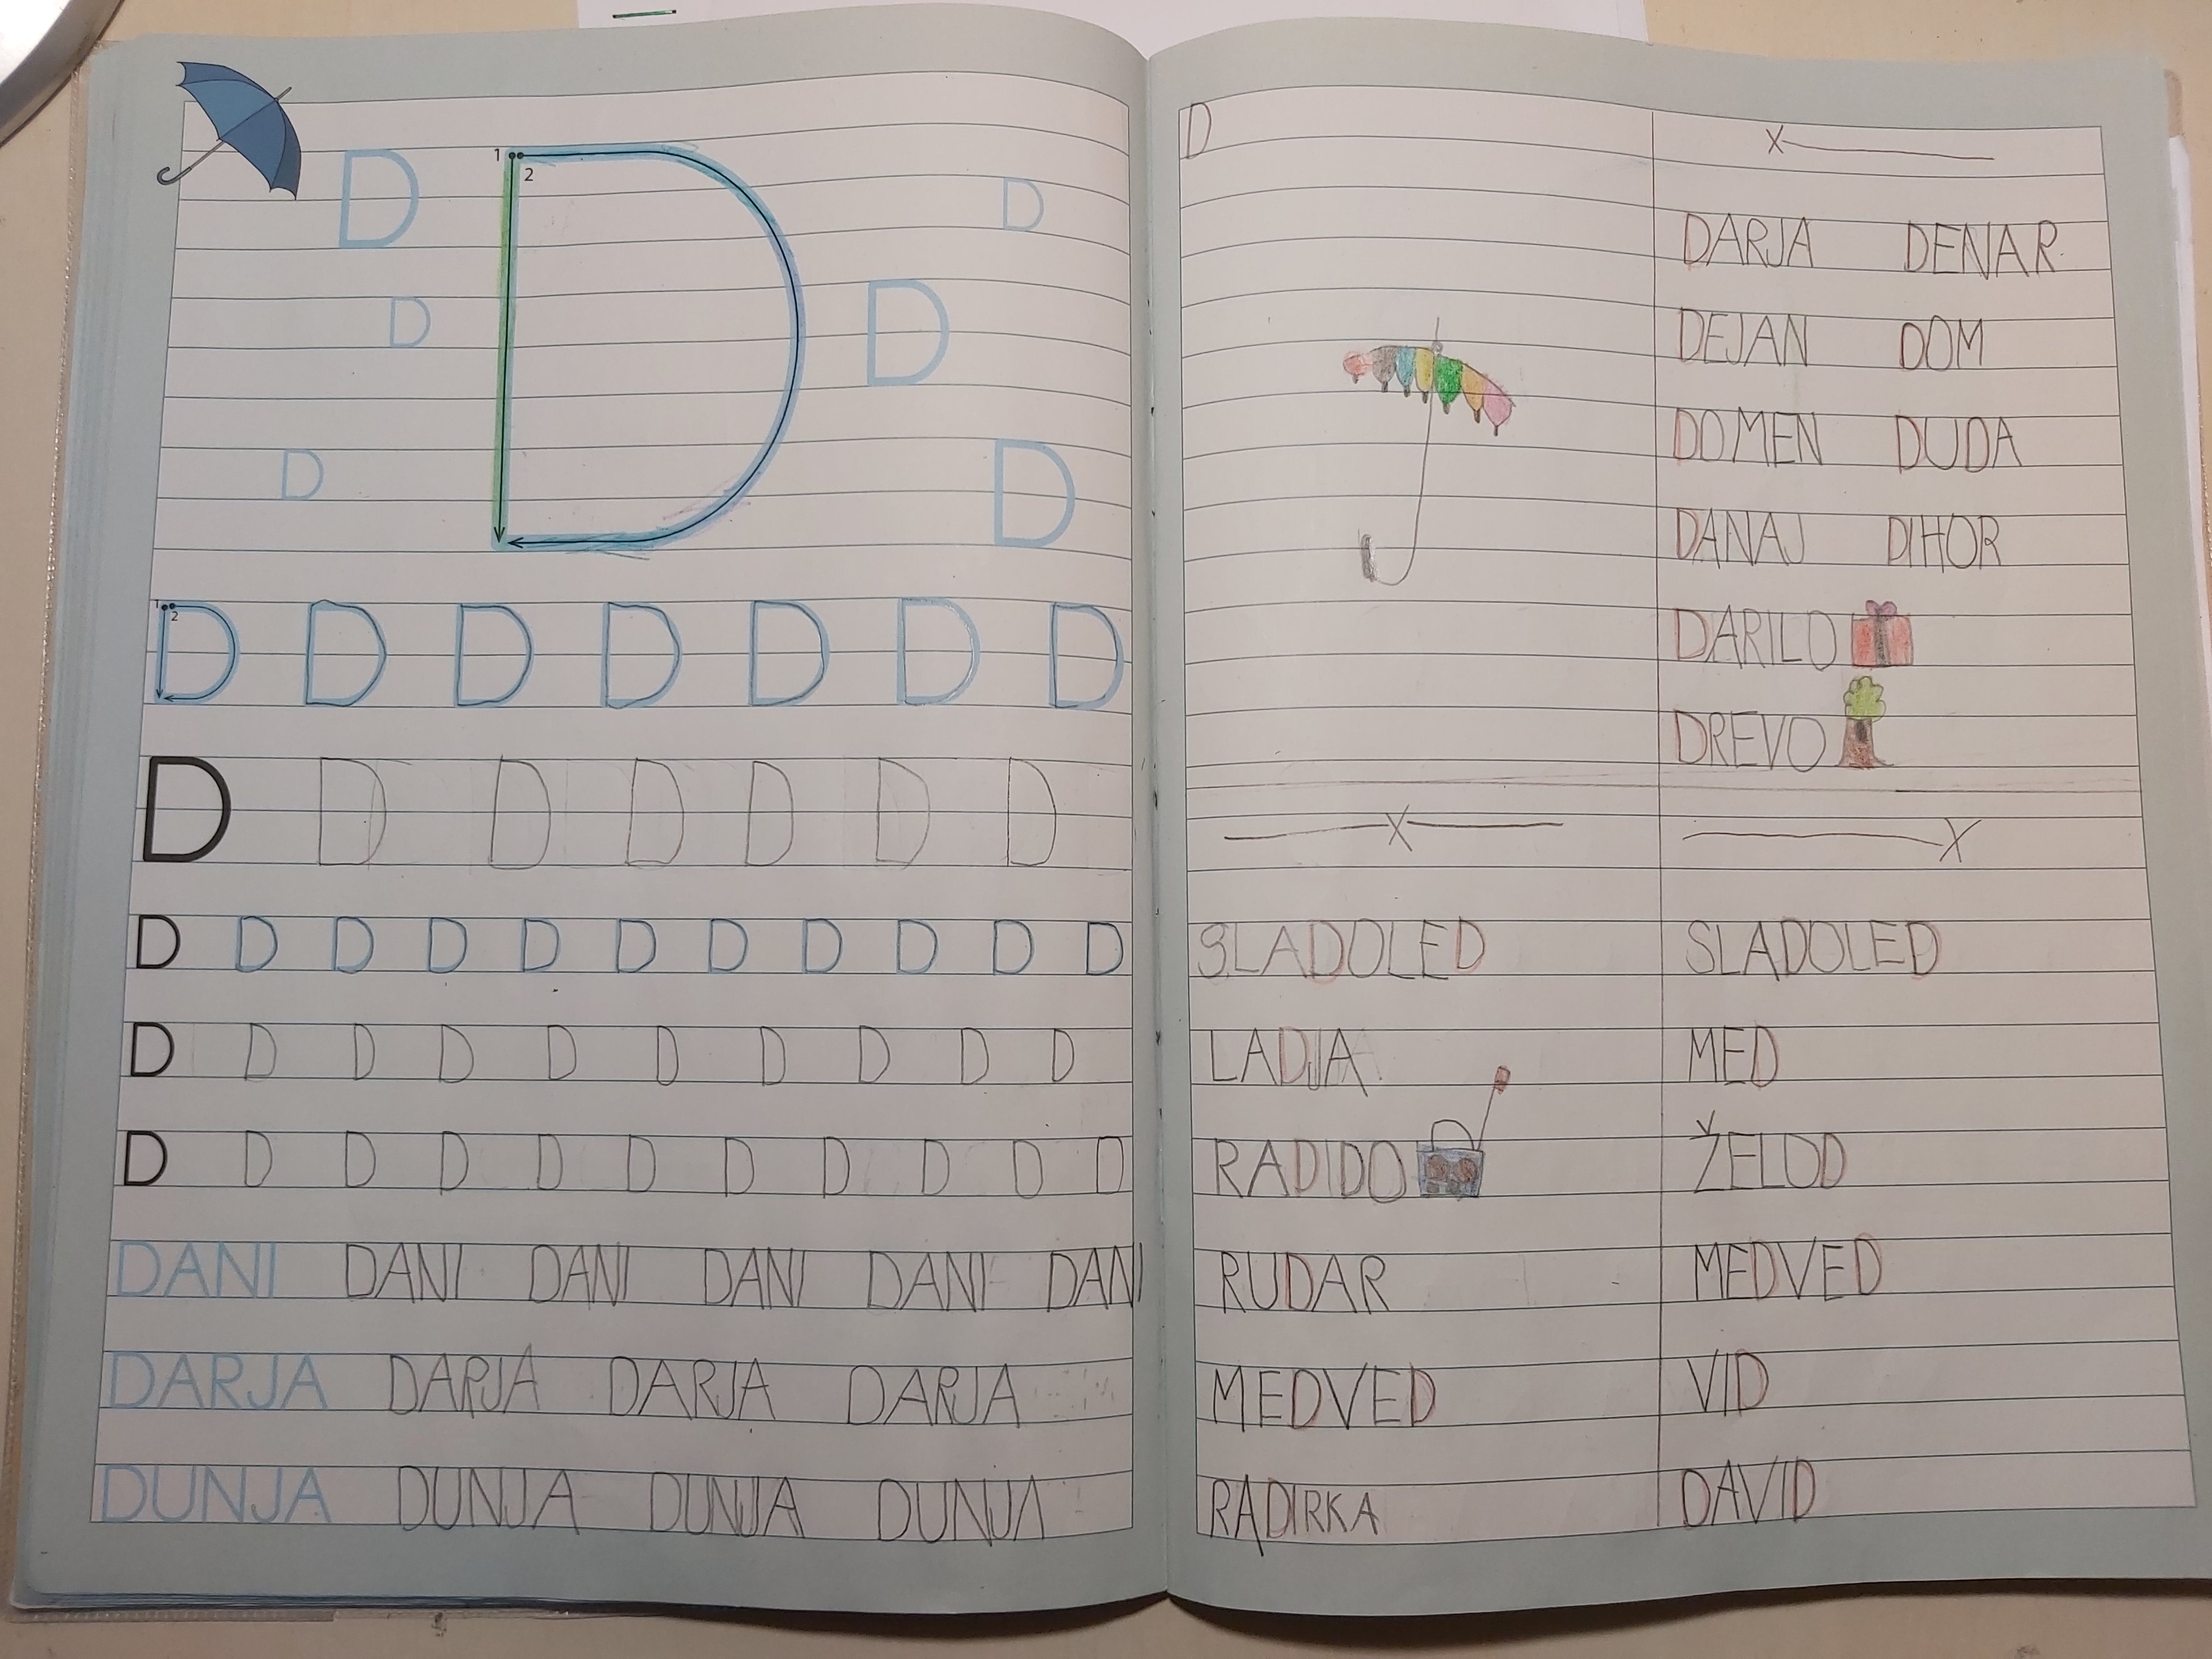 D 1 2 D
D D
D D
1 2 D D D D D D D
D D D D D D D
D D D D D D D D D D D
D D D D D D D D D D
D D D D D D D D D D D
DANI DANI DANI DANI DANI DANI
DARJA DARJA DARJA DARJA
DUNJA DUNJA DUNJA DUNJA
D
X
DARJA DENAR
DEJAN DOM
DOMEN DUDA
DANAJ DIHOR
DARILO
DREVO
X
SLADOLED
LADJA
RADIDO
RUDAR
MEDVED
RADIRKA
X
SLADOLED
MED
ŽELOD
MEDVED
VID
DAVID